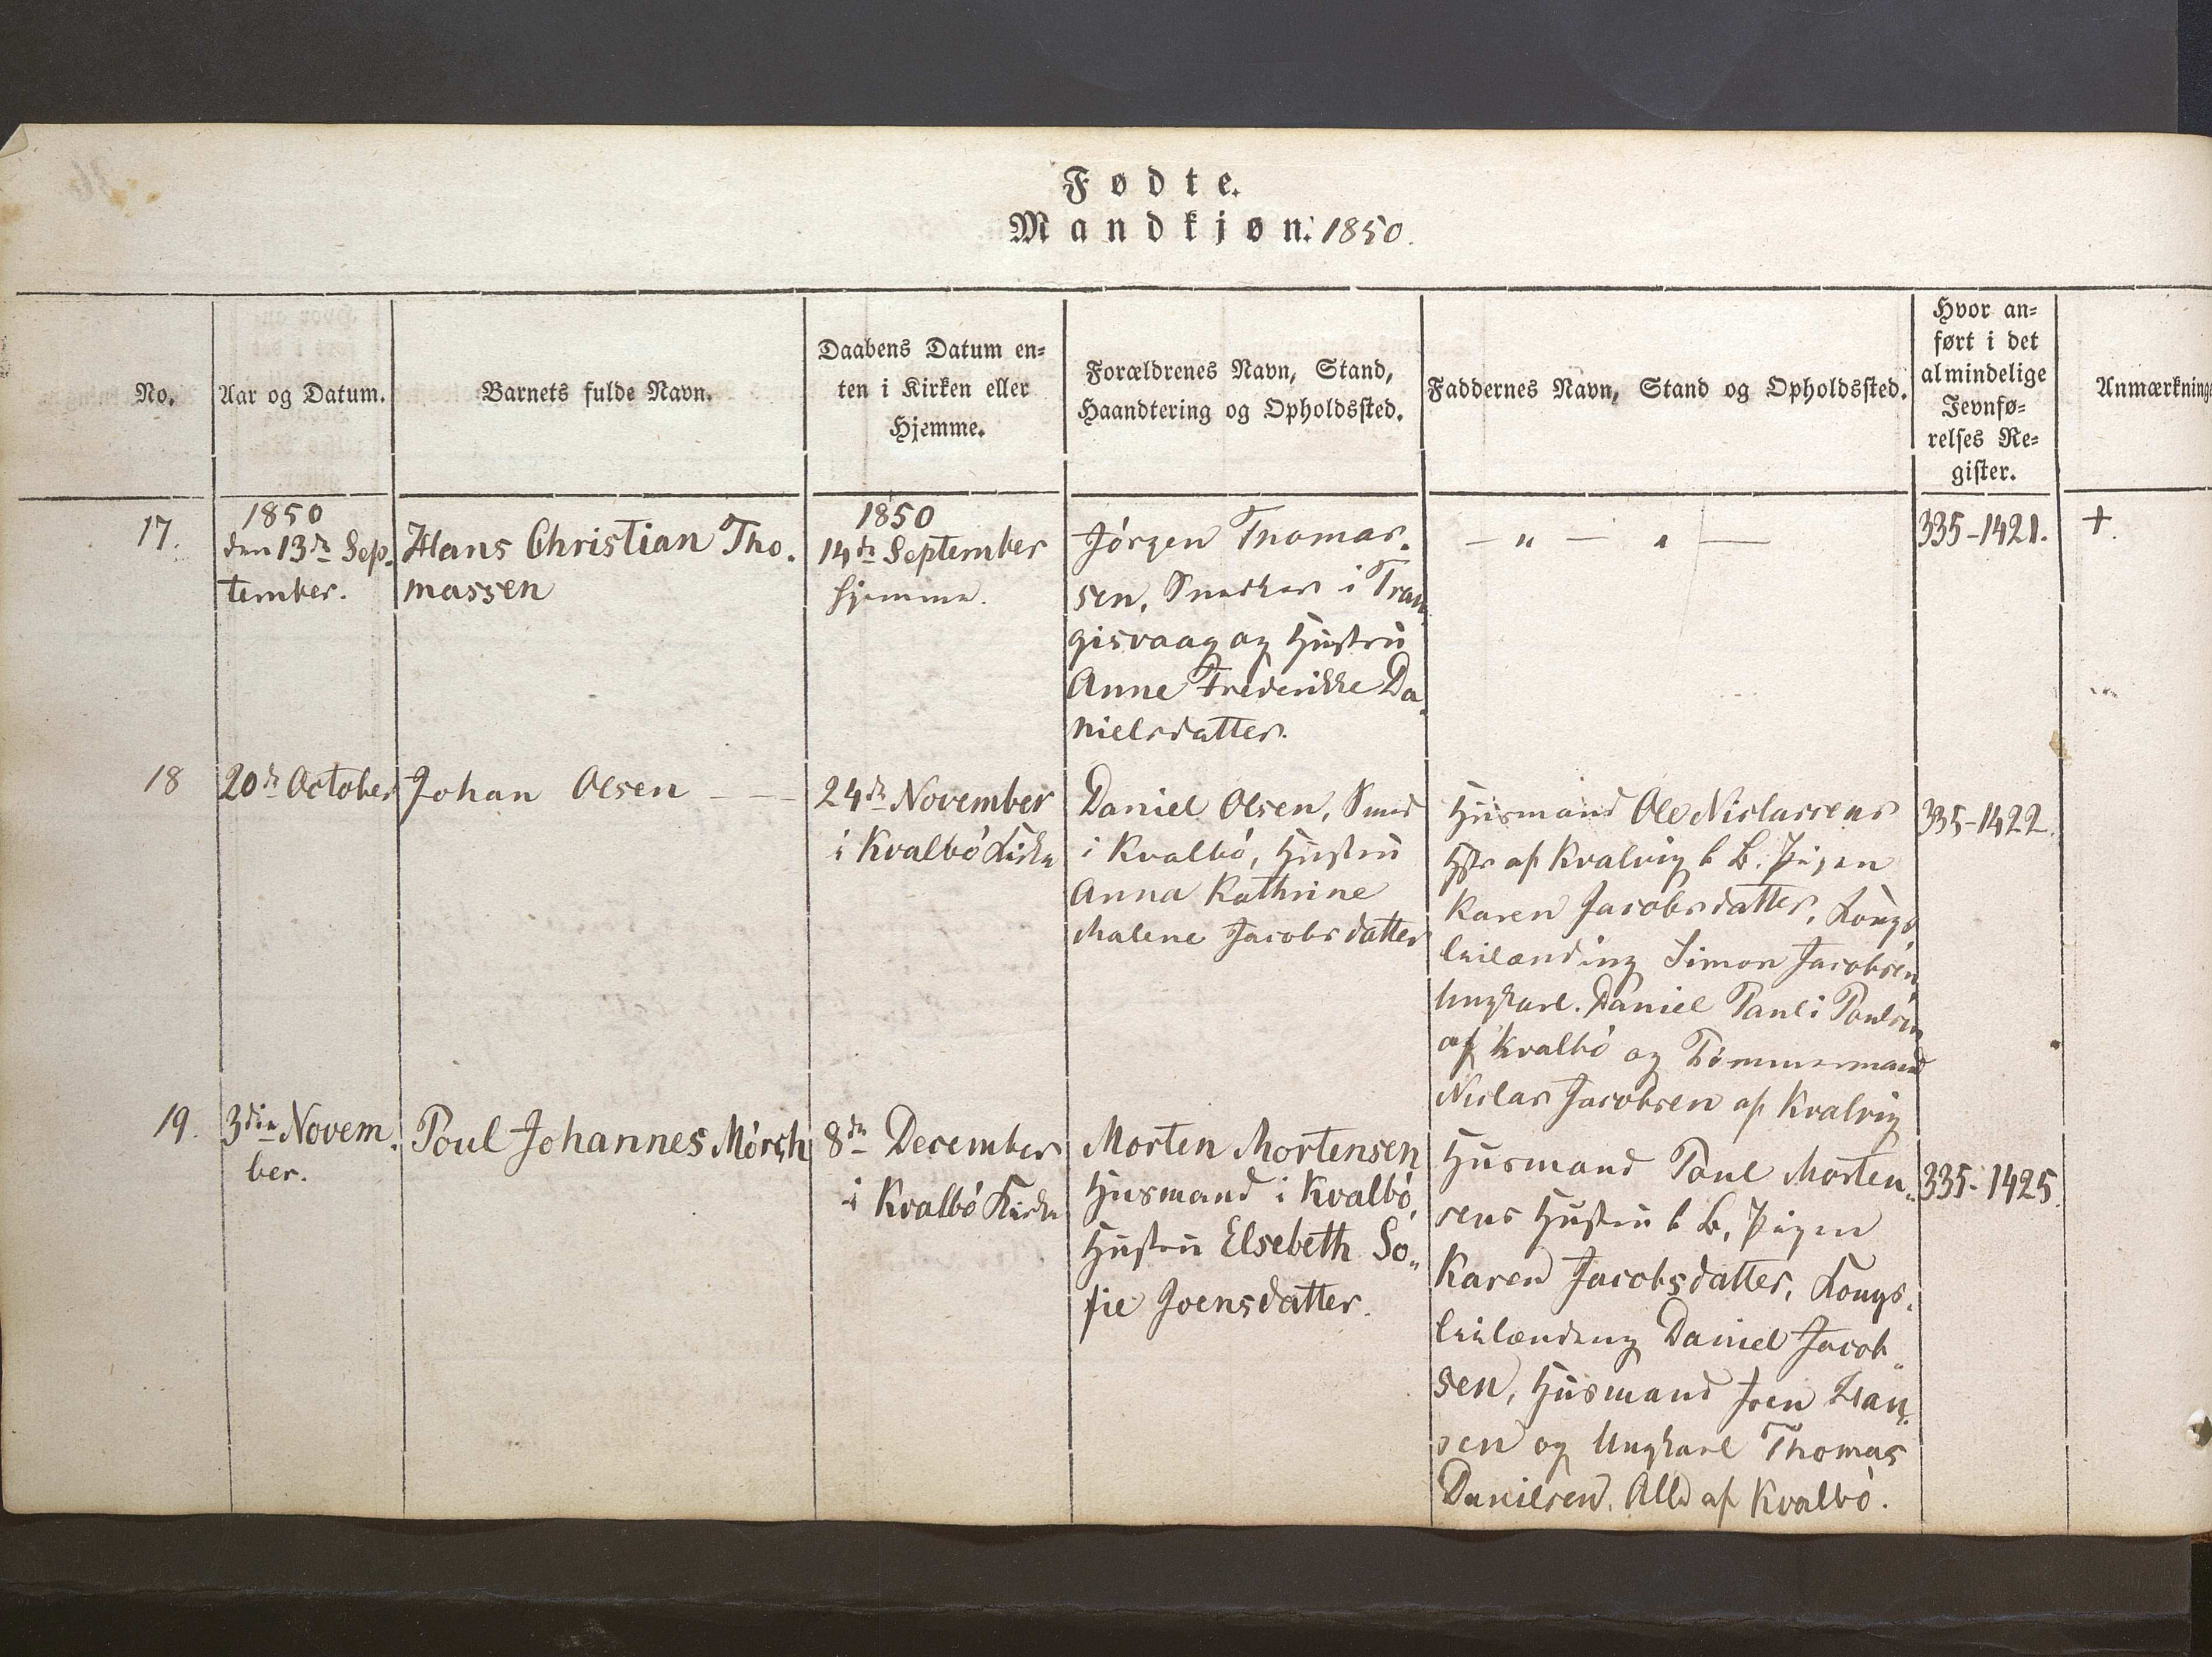 Fødte.
Mandkjøn. 1850.
No.
Aar og Datum.
Barnets fulde Navn.
Daabens Datum en=
ten i Kirken eller
Hjemme.
Forældrenes Navn, Stand,
Haandtering og Opholdssted.
Faddernes Navn, Stand og Opholdssted.
Hvor an=
ført i det
almindelige
Jevnfø=
relses Re=
gister.
Anmærkninge
17.
1850
den 13de Sep.
tember.
Hans Christian Tho.
massen
1850
14de September
hjemme.
Jørgen Thomas.
sen, Snedker i Tran
gisvaag og Hustru
Anne Frederikke Da
nielsdatter.
— " — " —
335-1421.
†.
18
20de October
Johan Olsen —
24de November
i Kvalbø Kirke
Daniel Olsen, Smed
i Kvalbø, Hustru
Anna Kathrine
Malene Jacobsdatter
Husmand Ole Niclassens
Hstr af Kvalvig b B. Pigen
Karen Jacobsdatter, Kongs
leilænding Simon Jacobsen
Ungkarl. Daniel Pauli Poulsen
af Kvalbø og Tømmermand
Niclas Jacobsen af Kvalvig
335-1422.
19.
3die Novem.
ber.
Poul Johannes Mørch
8de December
i Kvalbø Kirke
Morten Mortensen
Husmand i Kvalbø,
Hustru Elsebeth So„
fie Joensdatter.
Husmand Poul Morten„
sens Hustru b B, Pigen
Karen Jacobsdatter, Kongs.
leilænding Daniel Jacob„
sen, Husmand Joen
sen og Ungkarl Thomas
Danielsen. Alle af Kvalbø.
335-1425.